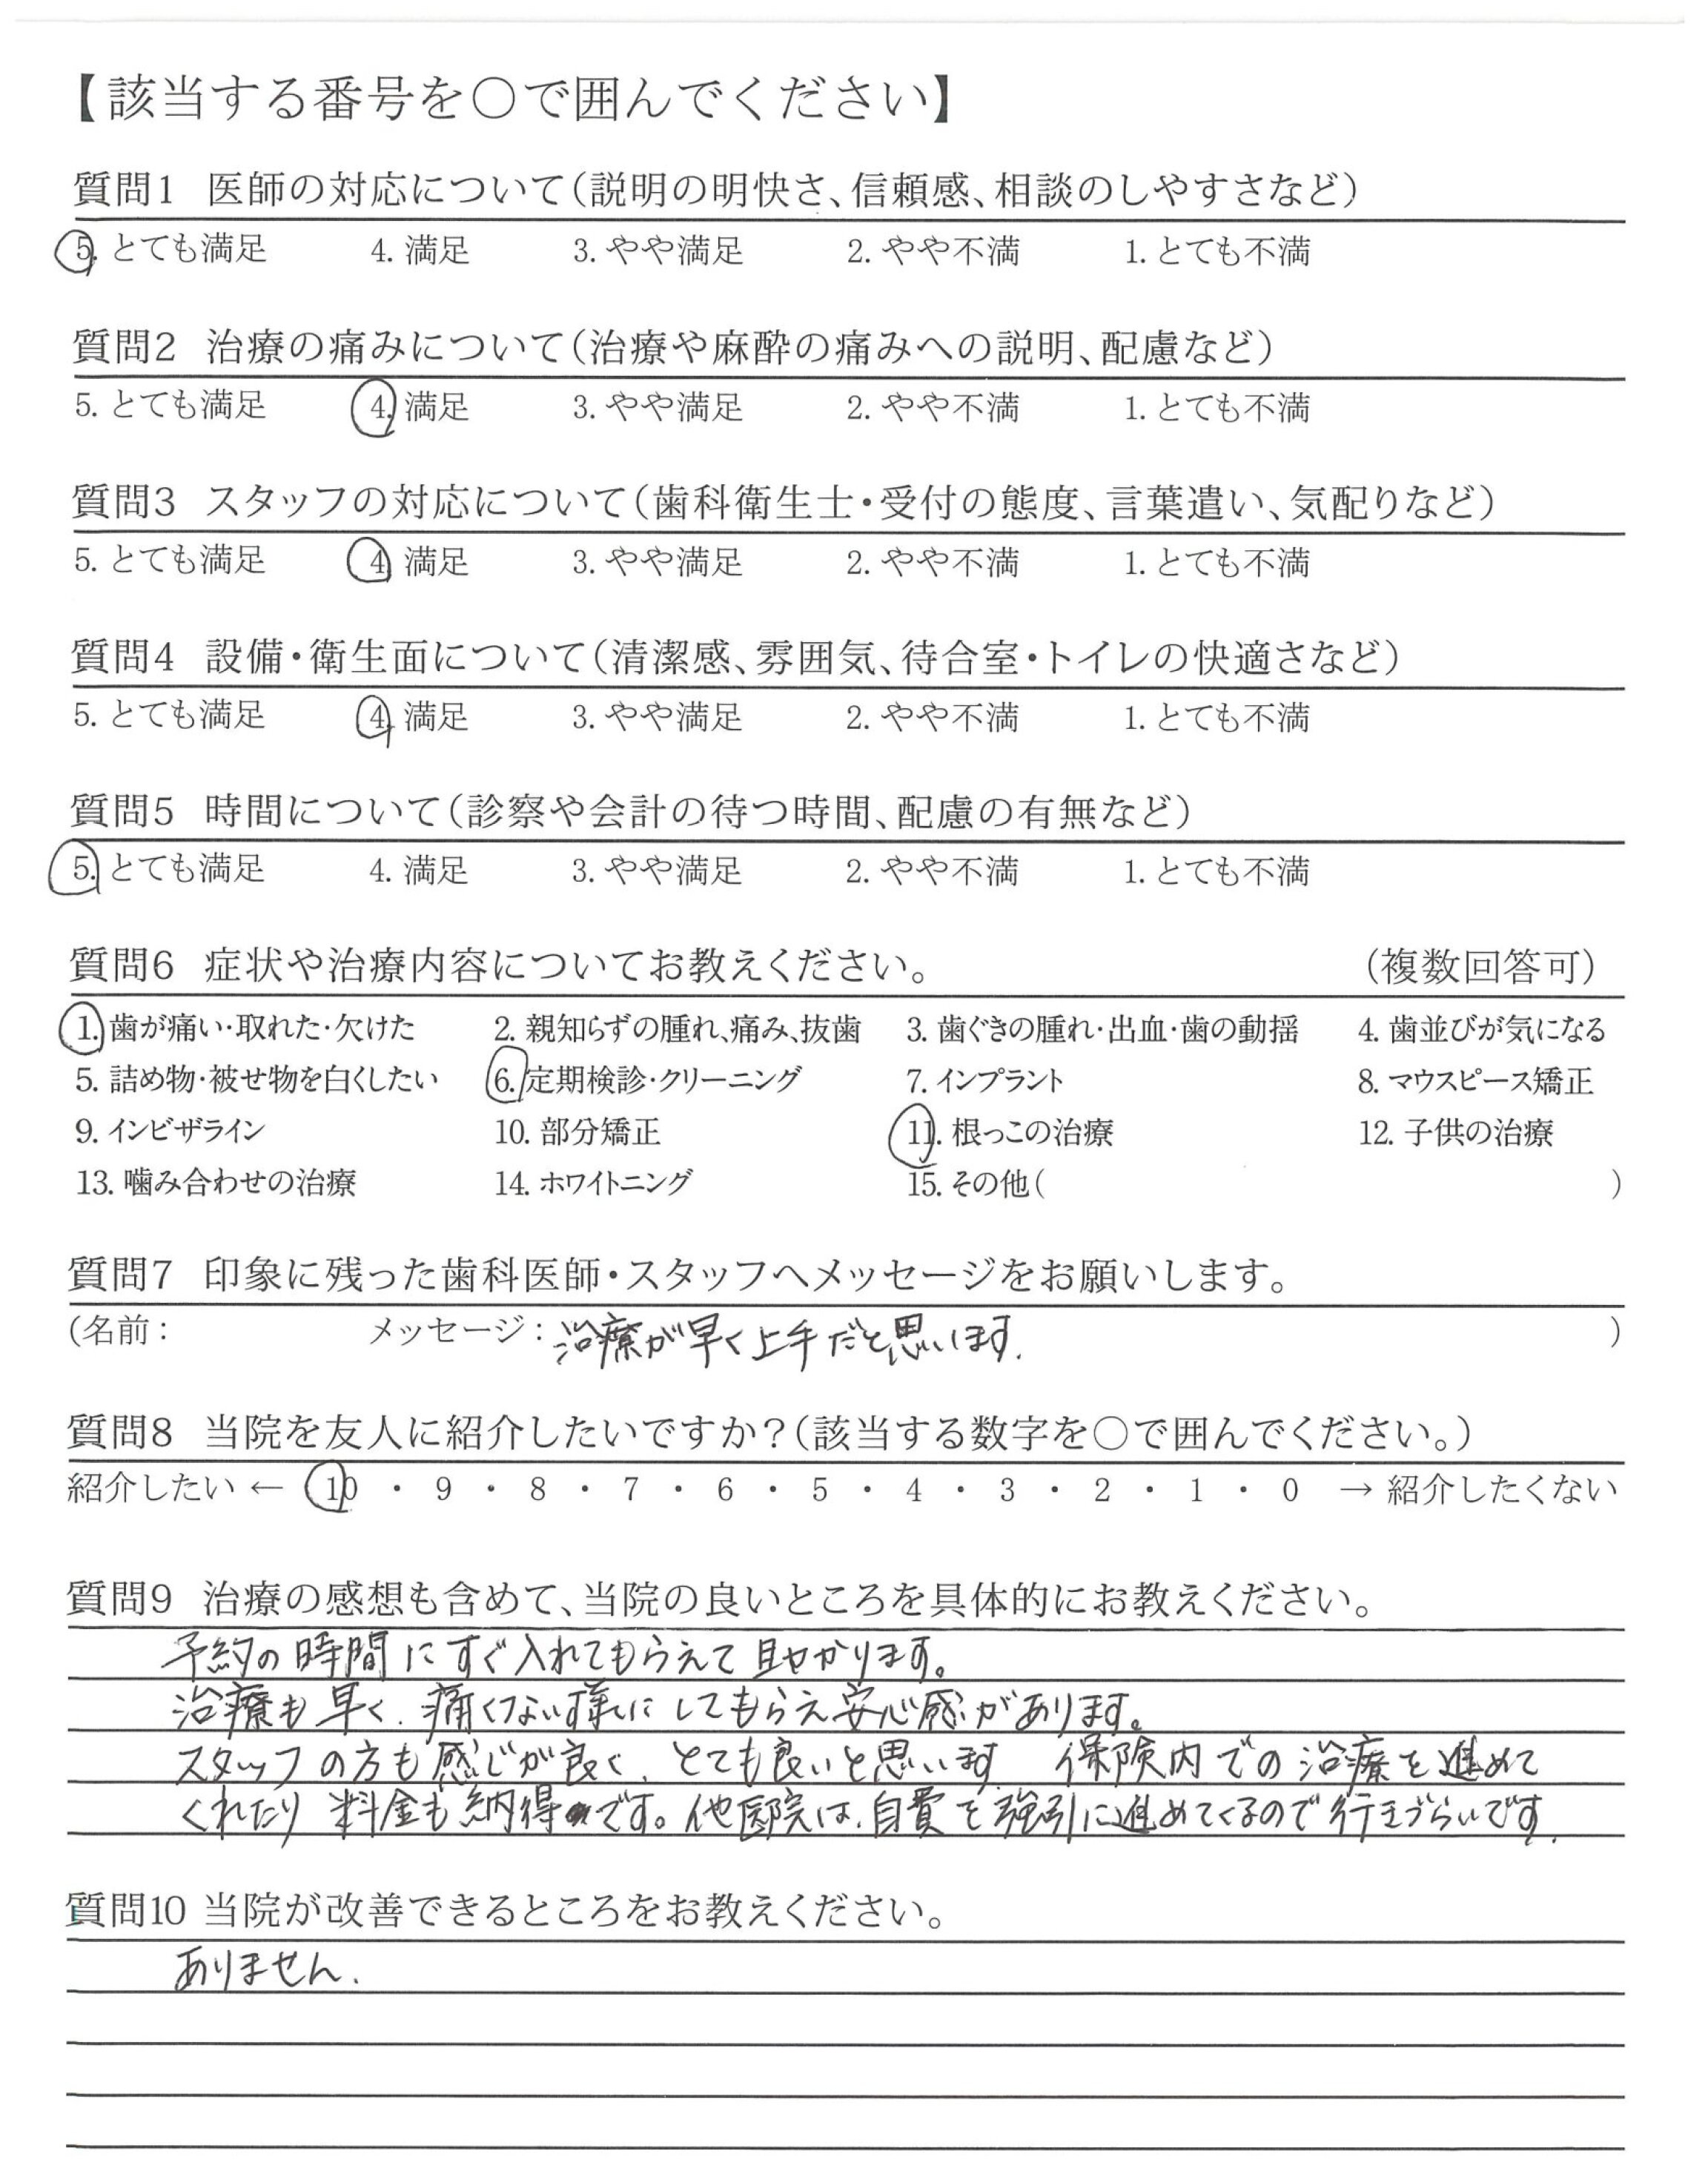 【該当する番号を○で囲んでください】
質問1 医師の対応について(説明の明快さ、信頼感、相談のしやすさなど)
5. とても満足 4. 満足 3. やや満足 2. やや不満 1. とても不満
質問2 治療の痛みについて(治療や麻酔の痛みへの説明、配慮など)
5. とても満足 4. 満足 3. やや満足 2. やや不満 1. とても不満
質問3 スタッフの対応について(歯科衛生士・受付の態度、言葉遣い、気配りなど)
5. とても満足 4. 満足 3. やや満足 2. やや不満 1. とても不満
質問4 設備・衛生面について(清潔感、雰囲気、待合室・トイレの快適さなど)
5. とても満足 4. 満足 3. やや満足 2. やや不満 1. とても不満
質問5 時間について(診察や会計の待つ時間、配慮の有無など)
5. とても満足 4. 満足 3. やや満足 2. やや不満 1. とても不満
質問6 症状や治療内容についてお教えください。 (複数回答可)
1. 歯が痛い・取れた・欠けた 2. 親知らずの腫れ、痛み、抜歯 3. 歯ぐきの腫れ・出血・歯の動揺 4. 歯並びが気になる
5. 詰め物・被せ物を白くしたい 6. 定期検診・クリーニング 7. インプラント 8. マウスピース矯正
9. インビザライン 10. 部分矯正 11. 根っこの治療 12. 子供の治療
13. 噛み合わせの治療 14. ホワイトニング 15. その他( )
質問7 印象に残った歯科医師・スタッフへメッセージをお願いします。
(名前: メッセージ: 治療が早く上手だと思います. )
質問8 当院を友人に紹介したいですか?(該当する数字を○で囲んでください。)
紹介したい ← 10 ・ 9 ・ 8 ・ 7 ・ 6 ・ 5 ・ 4 ・ 3 ・ 2 ・ 1 ・ 0 → 紹介したくない
質問9 治療の感想も含めて、当院の良いところを具体的にお教えください。
予約の時間にすぐ入れてもらえて助かります。
治療も早く、痛くない様にしてもらえ安心感があります。
スタッフの方も感じが良く、とても良いと思います 保険内での治療を進めて
くれたり 料金も納得です。他医院は、自費を強引に進めてくるので行きづらいです.
質問10 当院が改善できるところをお教えください。
ありません.